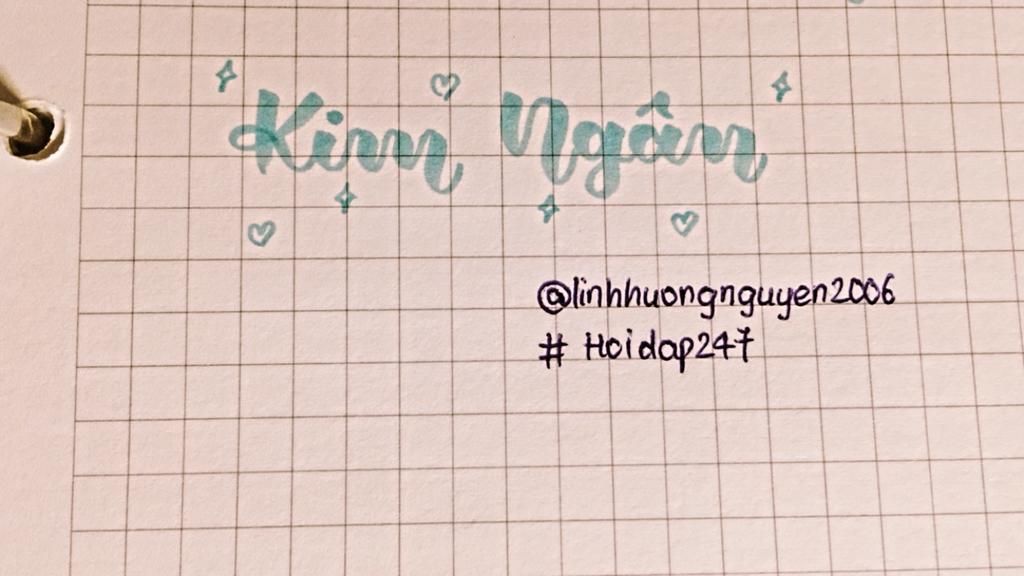 Kim Ngân
@linhhuongnguyen2006
# Hoidap247